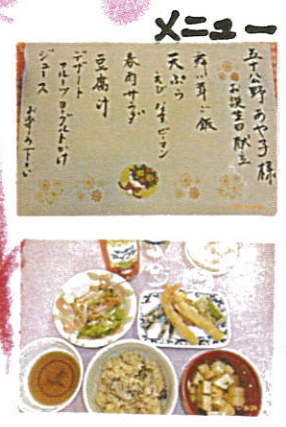 メニュー
五十公野 あや子 様
お誕生日献立
舞茸ご飯
天ぷら
えび なす ピーマン
春雨サラダ
豆腐汁
デザート
フルーツヨーグルトかけ
ジュース